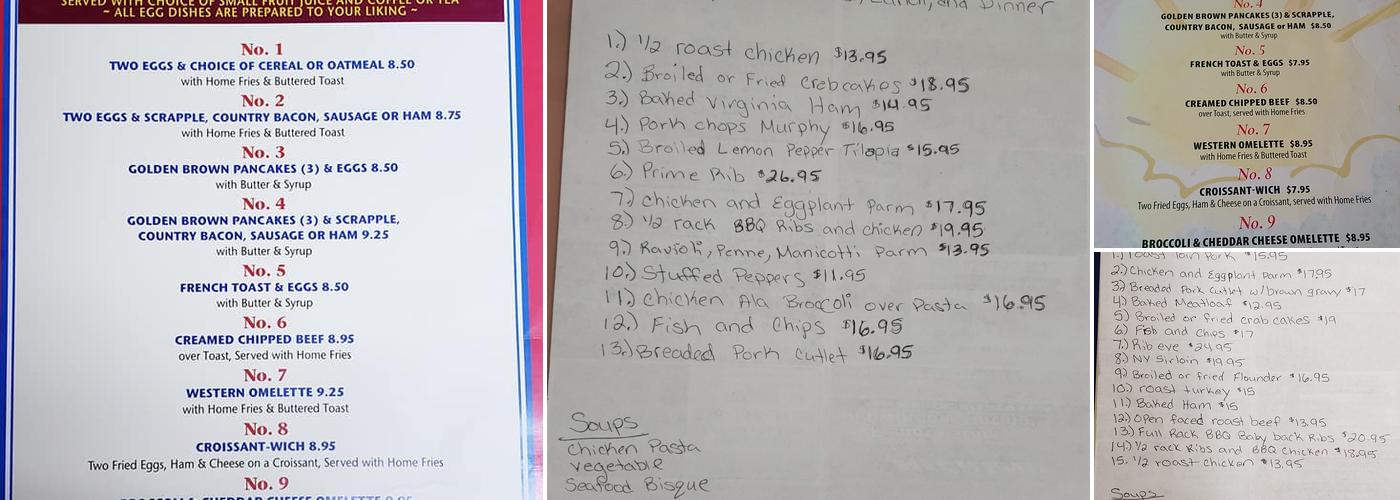 SERVED WITH CHOICE OF SMALL FRUIT JUICE AND COFFEE OR TEA
~ ALL EGG DISHES ARE PREPARED TO YOUR LIKING ~
No. 1
TWO EGGS & CHOICE OF CEREAL OR OATMEAL 8.50
with Home Fries & Buttered Toast
No. 2
TWO EGGS & SCRAPPLE, COUNTRY BACON, SAUSAGE OR HAM 8.75
with Home Fries & Buttered Toast
No. 3
GOLDEN BROWN PANCAKES (3) & EGGS 8.50
with Butter & Syrup
No. 4
GOLDEN BROWN PANCAKES (3) & SCRAPPLE,
COUNTRY BACON, SAUSAGE OR HAM 9.25
with Butter & Syrup
No. 5
FRENCH TOAST & EGGS 8.50
with Butter & Syrup
No. 6
CREAMED CHIPPED BEEF 8.95
over Toast, Served with Home Fries
No. 7
WESTERN OMELETTE 9.25
with Home Fries & Buttered Toast
No. 8
CROISSANT-WICH 8.95
Two Fried Eggs, Ham & Cheese on a Croissant, Served with Home Fries
No. 9
BROCCOLI & CHEDDAR CHEESE OMELETTE
Lunch, and Dinner
1.) 1/2 roast chicken $13.95
2.) Broiled or Fried Crebcakes $18.95
3.) Baked Virginia Ham $14.95
4.) Pork chops Murphy $16.95
5.) Broiled Lemon Pepper Tilapia $15.95
6.) Prime Rib $26.95
7.) chicken and Eggplant Parm $17.95
8.) 1/2 rack BBQ Ribs and chicken $19.95
9.) Ravioli, Penne, Manicotti Parm $13.95
10.) Stuffed Peppers $11.95
11.) chicken Ala Broccoli over Pasta $16.95
12.) Fish and Chips $16.95
13.) Breaded Pork Cutlet $16.95
Soups
chicken Pasta
vegetable
Seafood Bisque
No. 4
GOLDEN BROWN PANCAKES (3) & SCRAPPLE,
COUNTRY BACON, SAUSAGE or HAM $8.50
with Butter & Syrup
No. 5
FRENCH TOAST & EGGS $7.95
with Butter & Syrup
No. 6
CREAMED CHIPPED BEEF $8.50
over Toast, served with Home Fries
No. 7
WESTERN OMELETTE $8.95
with Home Fries & Buttered Toast
No. 8
CROISSANT-WICH $7.95
Two Fried Eggs, Ham & Cheese on a Croissant, served with Home Fries
No. 9
BROCCOLI & CHEDDAR CHEESE OMELETTE $8.95
1.) roast loin Pork $15.95
2.) Chicken and Eggplant Parm $17.95
3.) Breaded Pork Cutlet w/brown gravy $17
4.) Baked Meatloaf $12.95
5.) Broiled or fried crab cakes $19
6.) Fish and Chips $17
7.) Rib eye $24.95
8.) NY Sirloin $19.95
9.) Broiled or fried Flounder $16.95
10.) roast turkey $15
11.) Baked Ham $15
12.) Open faced roast beef $13.95
13.) Full Rack BBQ Baby back Ribs $20.95
14.) 1/2 rack Ribs and BBQ Chicken $18.95
15. 1/2 roast chicken $13.95
Soups